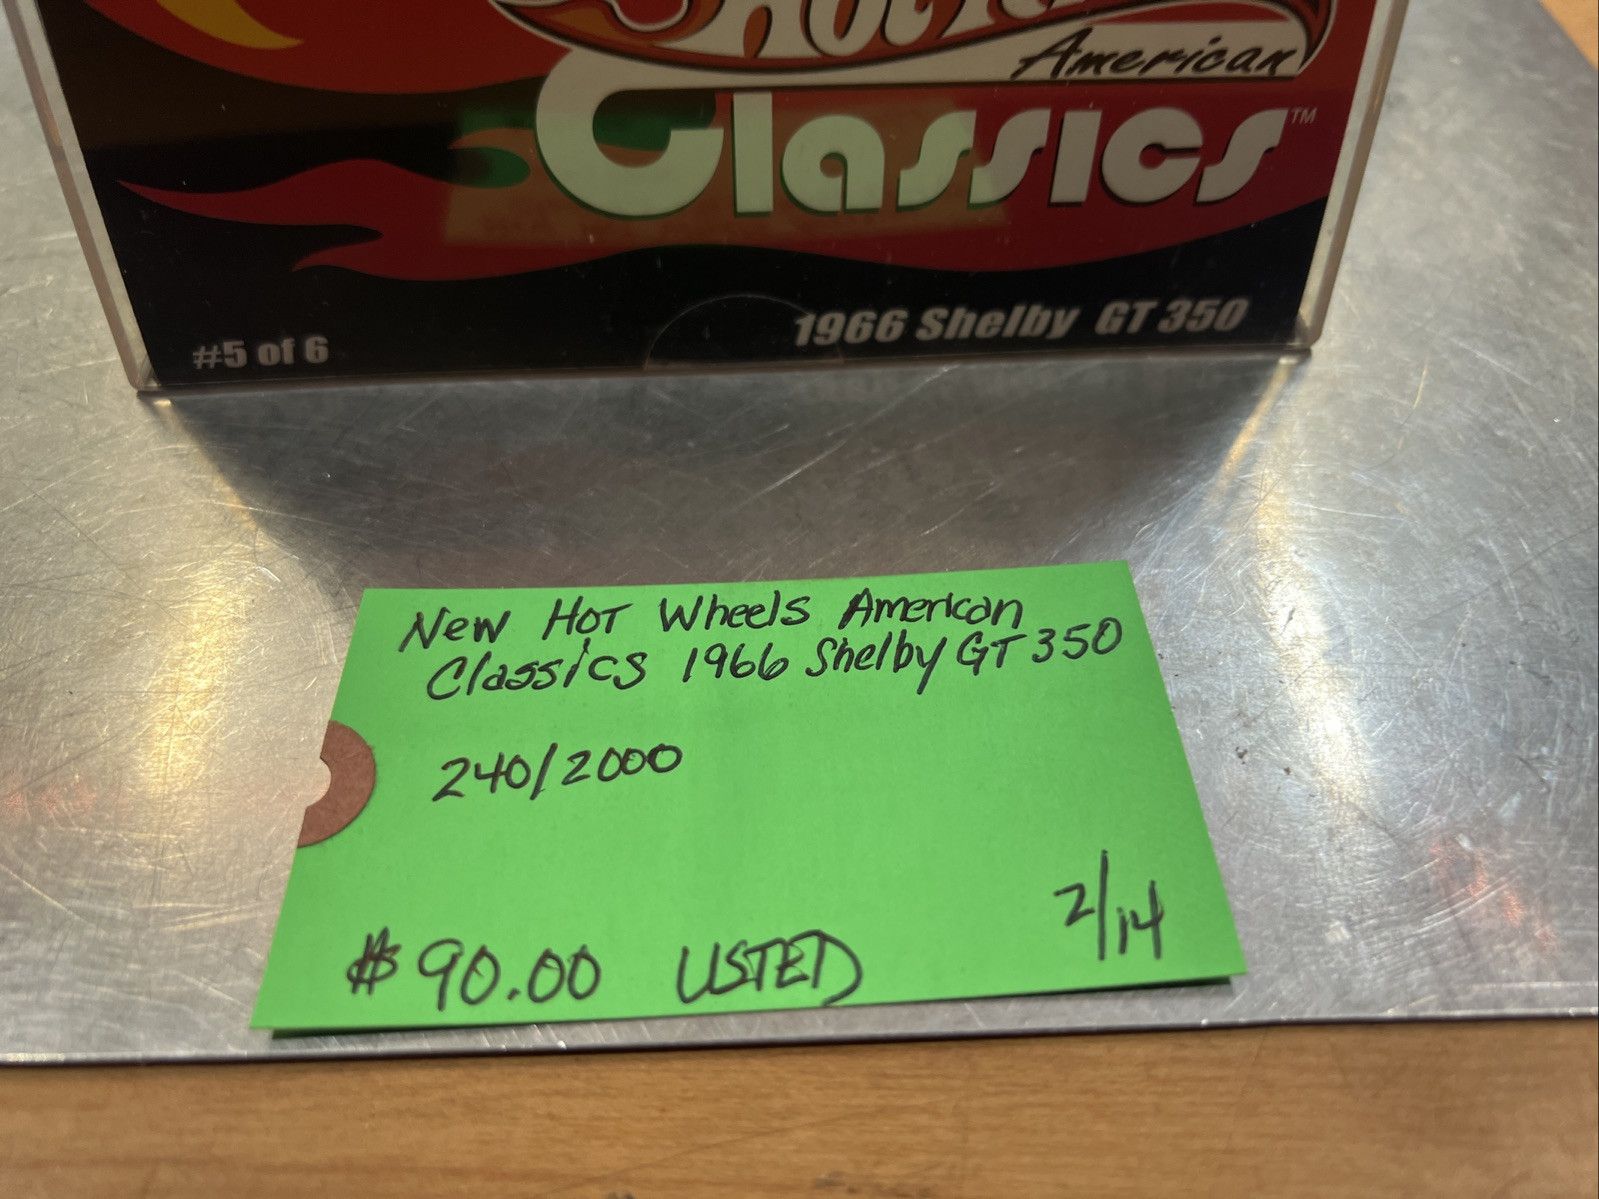 American
Classics™
#5 of 6
1966 Shelby GT 350
New Hot Wheels American
Classics 1966 Shelby GT 350
240/2000
$90.00 USTED
2/14